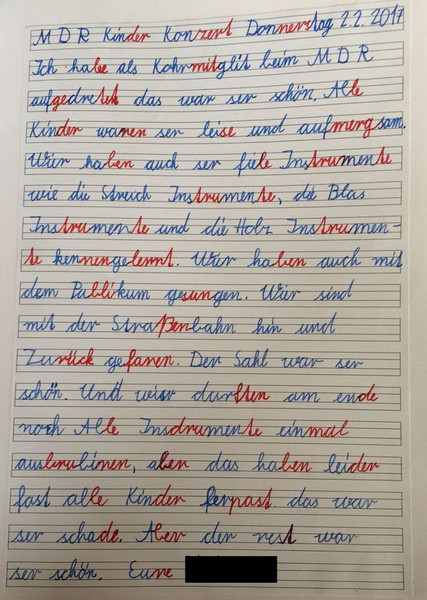 M D R Kinder Konzert Donnerstag 2.2.2017
Ich habe als Kohrmitglit beim M D R
aufgedretet das war ser schön. Alle
Kinder waren ser leise und aufmergsam.
Wier haben auch ser fiele Instrumente
wie die Streich Instrumente, die Blas
Instrumente und die Holz Instrumen-
te kennengelernt. Wier haben auch mit
dem Publikum gesungen. Wier sind
mit der Straßenbahn hin und
Zurück gefaren. Der Sahl war ser
schön. Und wier durften am ende
noch Alle Insdrumente einmal
ausbrubieren, aber das haben leider
fast alle Kinder ferpast das war
ser schade. Aber der rest war
ser schön. Eure